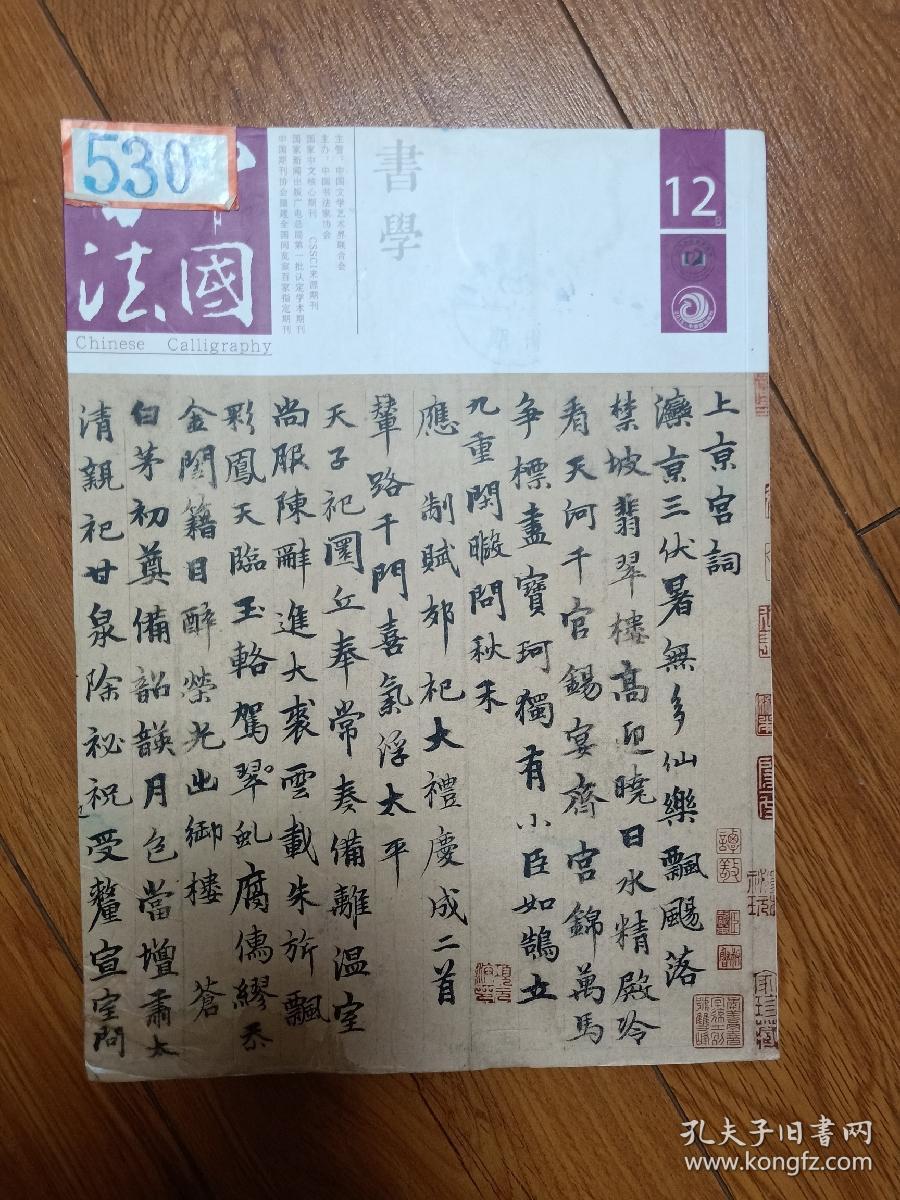 530
中國
法
Chinese Calligraphy
主管：中国文学艺术界联合会
主办：中国书法家协会
国家中文核心期刊 CSSCI来源期刊
国家新闻出版广电总局第一批认定学术期刊
中国期刊协会馆建全国阅览室百家指定期刊
書學
12
B
上京宮詞
灤京三伏暑無多仙樂飄颺落
禁坡翡翠樓高迎曉日水精殿冷
看天河千官錫宴齊宮錦萬馬
爭標盡寶珂獨有小臣如鵠立
九重閑暇問秋禾
應制賦郊祀大禮慶成二首
輦路千門喜氣浮太平
天子祀圜丘奉常奏備離温室
尚服陳辭進大裘雲載朱旂飄
彩鳳天臨玉輅駕翠虬腐儒繆忝
金閨籍目醉榮光出御樓 蒼
白茅初奠備韶韺月色當壇肅太
清親祀甘泉除祕祝受釐宣室問
孔夫子旧书网
www.kongfz.com